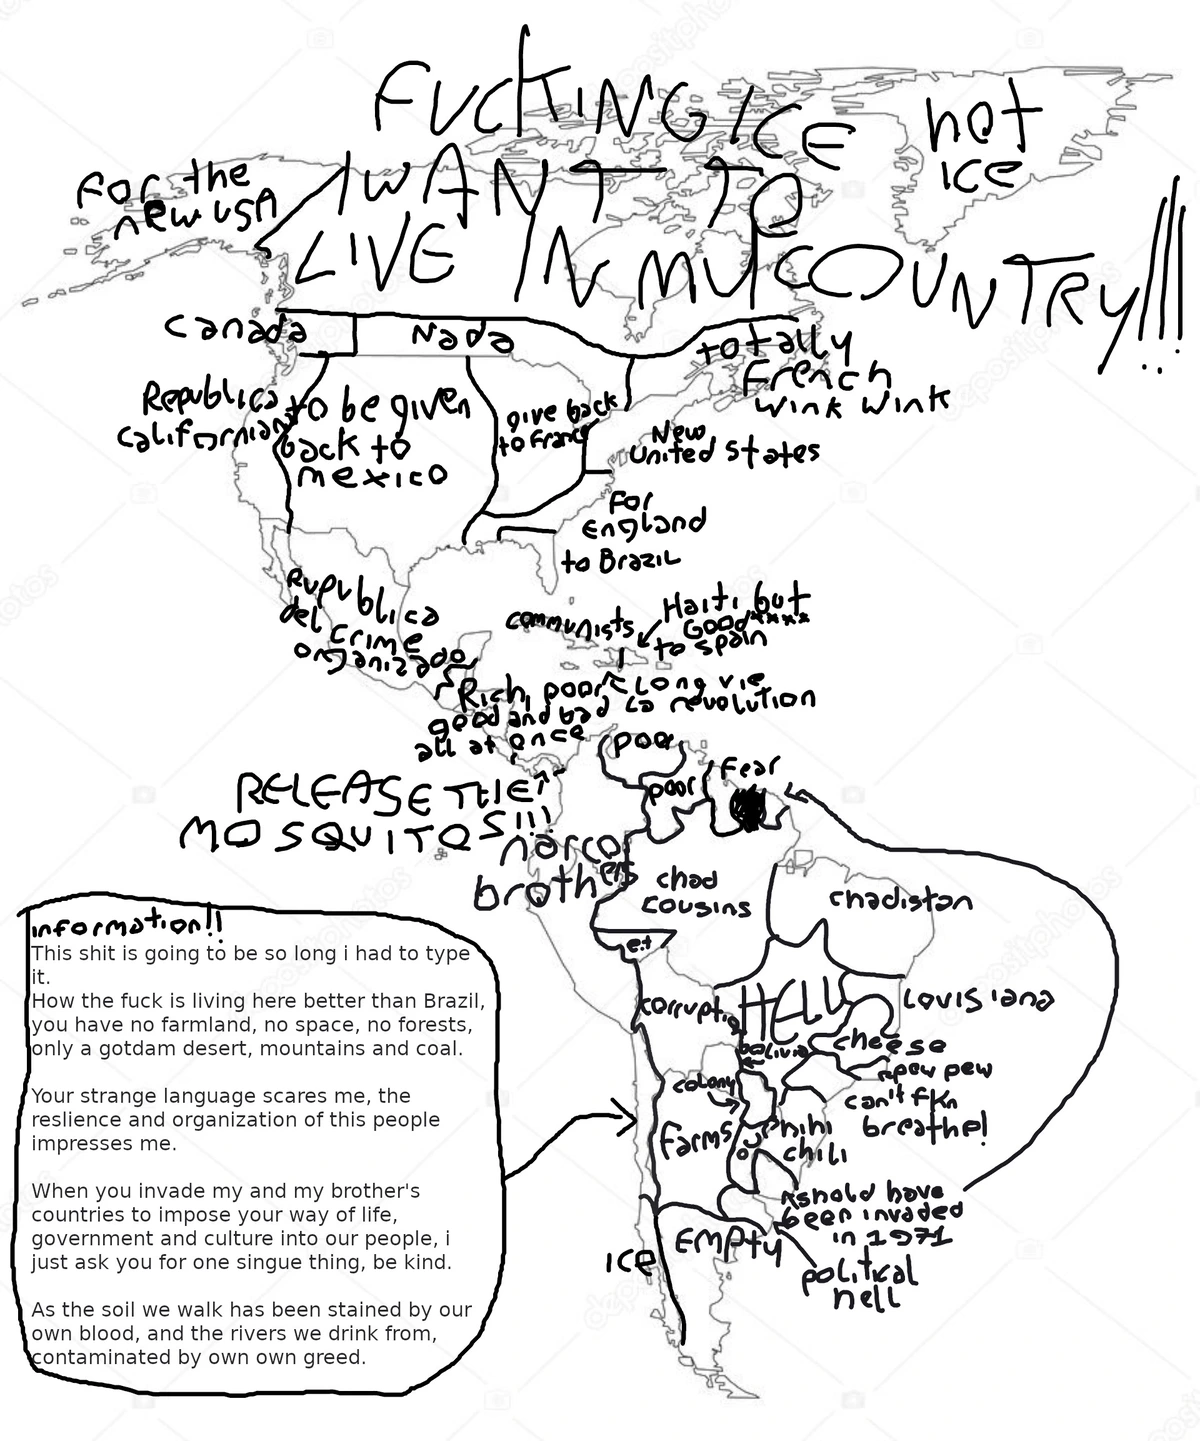 FUCKING ICE
I WANT TO
LIVE IN MY COUNTRY!!!
not
ICE
For the
new USA
Canada
Nada
totally
French
wink wink
Republica
californian
to be given
back to
mexico
give back
to France
New
United States
For
England
to Brazil
Rupublica
del crime
organizado
communists
Haiti but
Good****
to spain
Long vie
La revolution
Rich, poor
good and bad
all at once
poor
poor
Fear
RELEASE THE
MOSQUITOS!!!
narco
brothers
chad
cousins
chadistan
e.t
corruptio
HELL
Louisiana
bolivia
cheese
pew pew
can't fkn
breathe!
colony
Farms
mini
chili
shold have
been invaded
in 1971
EMPty
political
hell
ICE
information!!
This shit is going to be so long i had to type
it.
How the fuck is living here better than Brazil,
you have no farmland, no space, no forests,
only a gotdam desert, mountains and coal.
Your strange language scares me, the
reslience and organization of this people
impresses me.
When you invade my and my brother's
countries to impose your way of life,
government and culture into our people, i
just ask you for one singue thing, be kind.
As the soil we walk has been stained by our
own blood, and the rivers we drink from,
contaminated by own own greed.
depositphotos